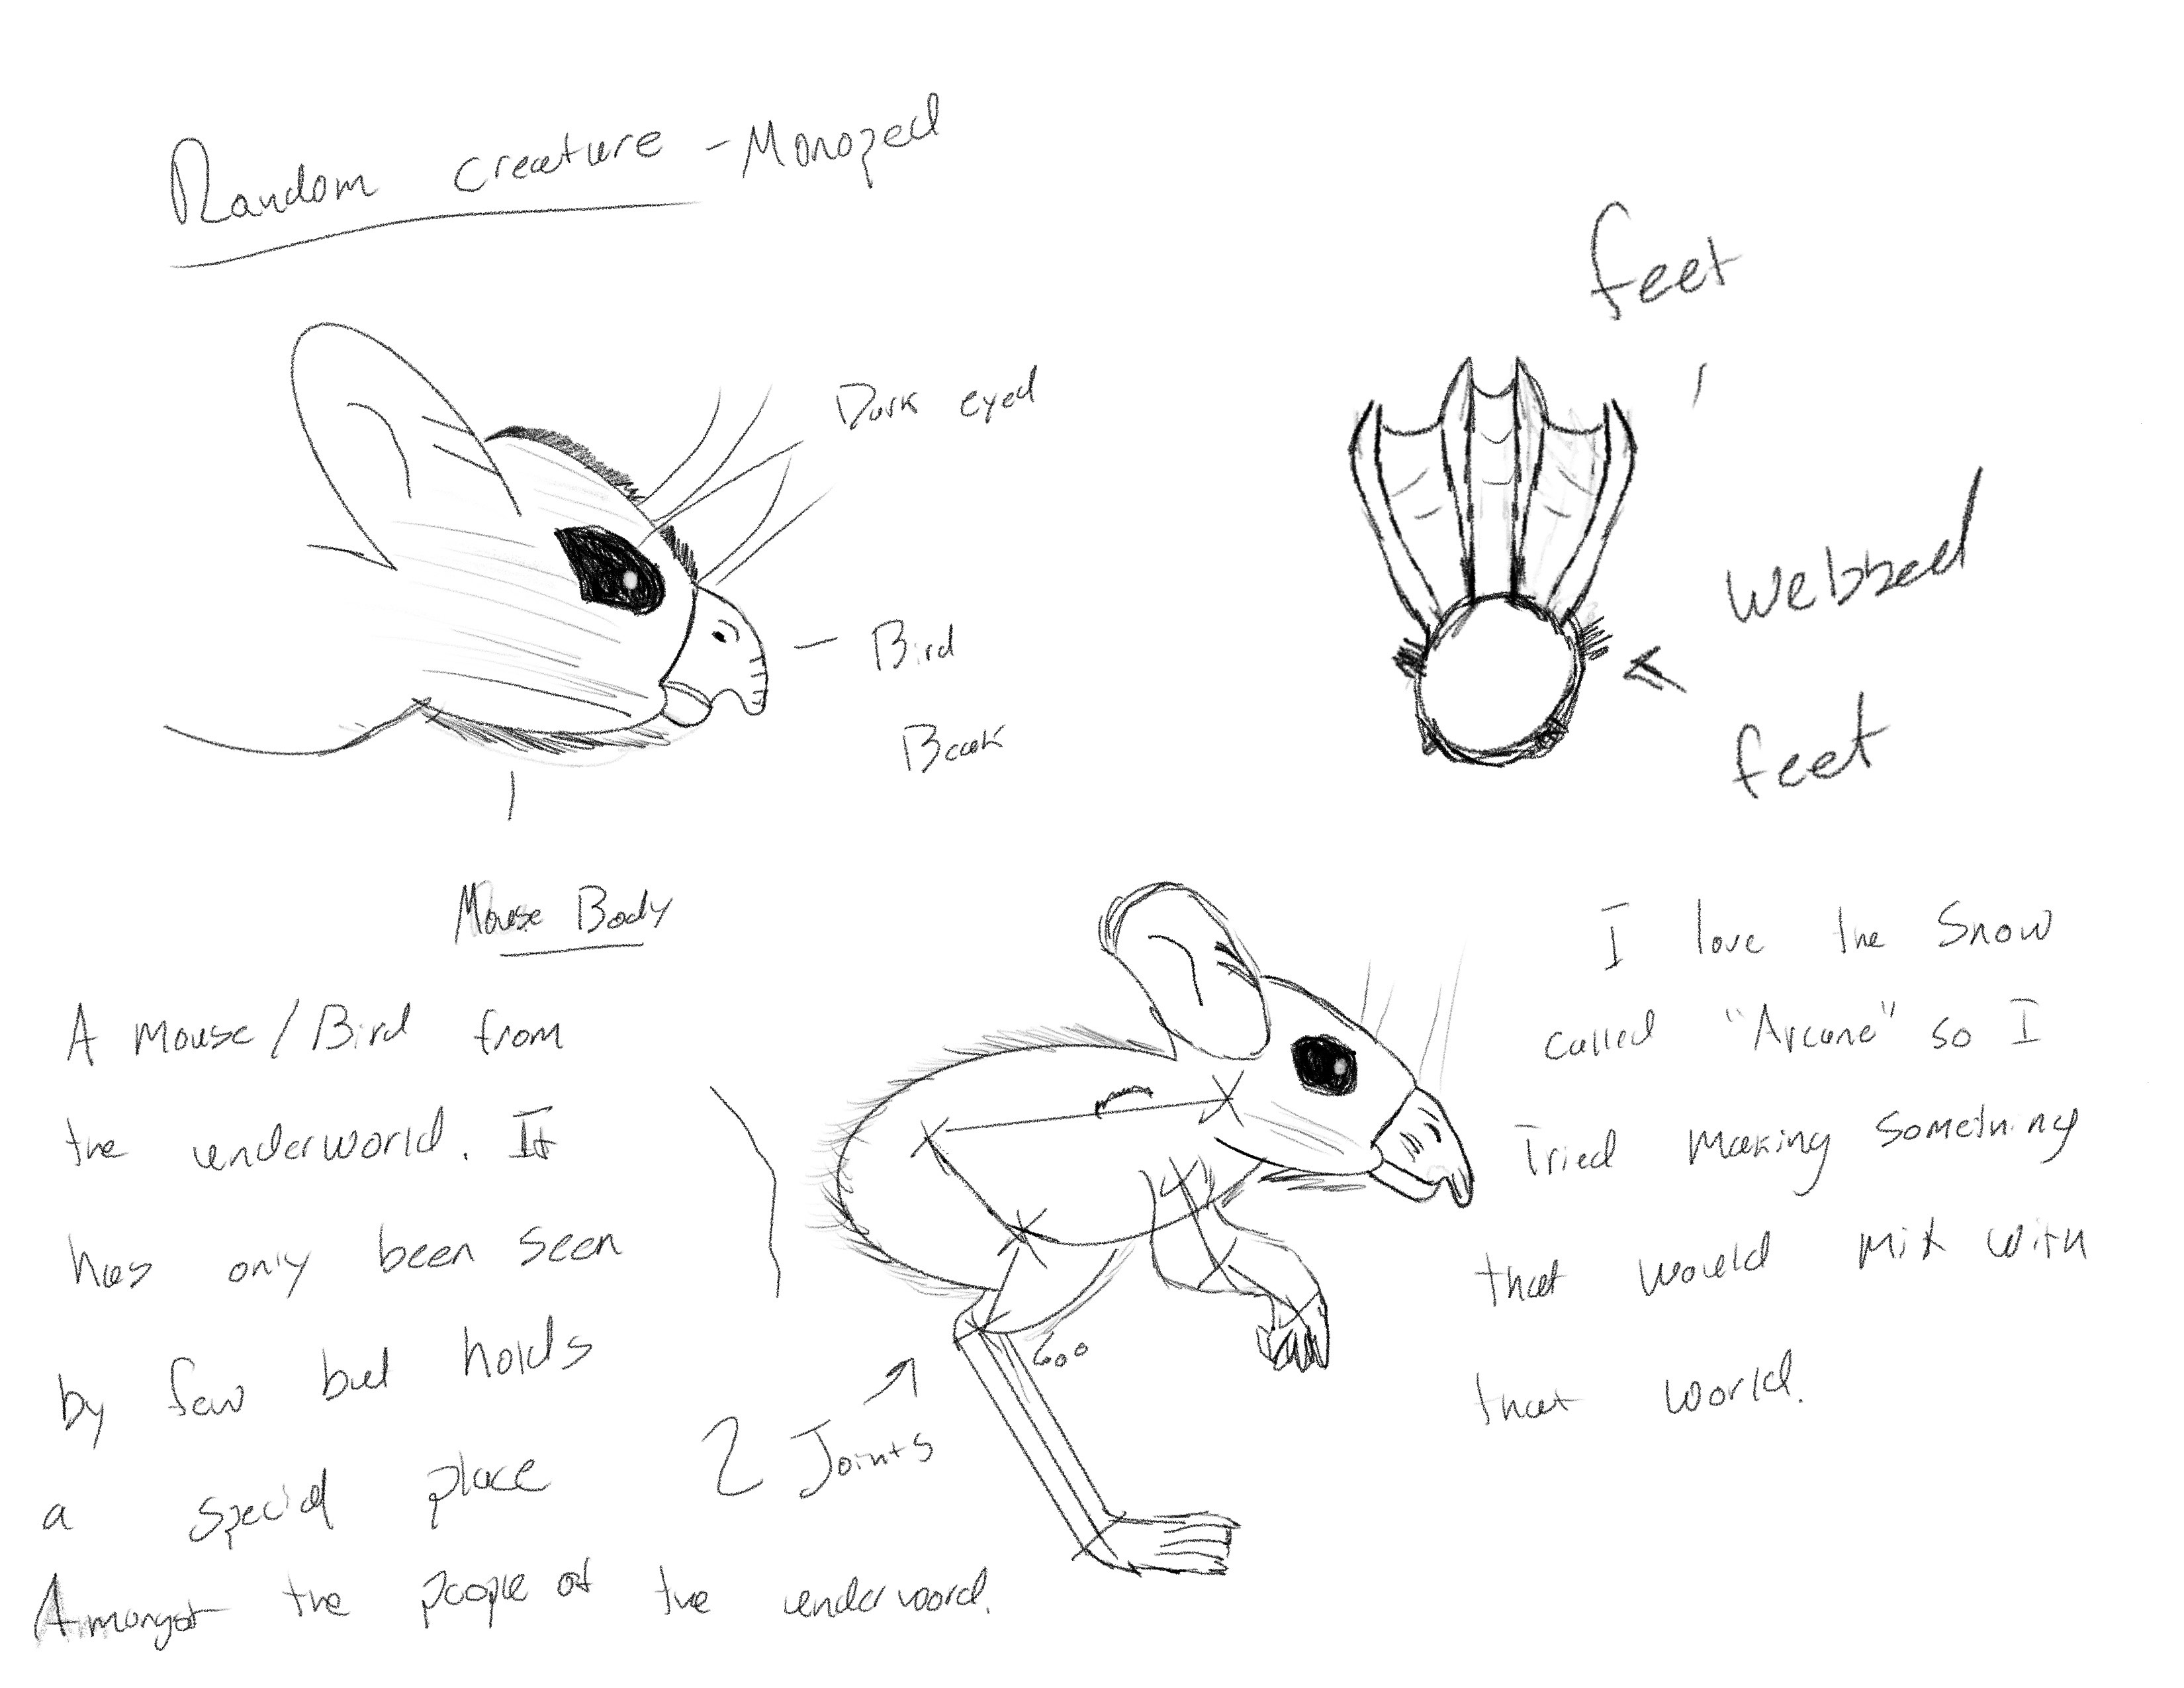 Random creature - Monoped
feet
Dark eyed
Bird
Beak
Webbed
feet
Mouse Body
A Mouse/Bird from
the underworld. It
has only been seen
by few but holds
a special place
Amongst the people of the underword.
2 Joints
I love the Snow
called "Arcane" so I
Tried Making Something
that would mix with
that world.